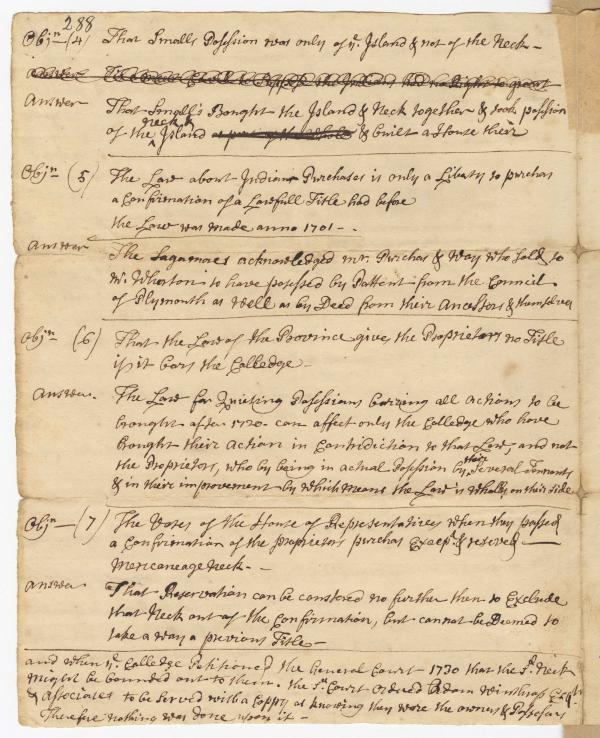 288
Objn — (4) That Smalls Posession was only of ye. Island & not of the Neck —
Answer
Answer That Small's Bought the Island & Neck together & took possion
of the Neck & Island & built a House their
Objn (5) The Law about Indian Purchases is only a Liberty to purchas
a Confirmation of a Lawfull Title had before
the Law was made anno 1701 - .
Answer
The Sagamores acknowledged mr. Purchas & Way who Sold to
Mr. Wharton to have posessed by Pattent from the Council
of Plymouth as Well as by Deed from their Ancestors & themselves
Objn (6) That the Law of the Province gives the Proprietors no Title
if it bars the Colledge —
Answer. The Law for Quieting Posessians barring all actions to be
brought after 1720 can affect only the Colledge who have
Brought their Action in Contridiction to that Law, and not
the Proprietors, who by being in actual Posession by their Several Tennants
& in their improvement by which means the Law is wholly on their side
Objn — (7) The Votes of the House of Representatives when they passed
a Confirmation of the Proprietors purchas Except. & reserved
Merconeage Neck. -
Answer That Reservation can be constered no further then to Exclude
that Neck out of the Confirmation, but cannot be Deemed to
take a way a previous Title —
and when ye. Colledge Petitioned the General Court 1730 that the Sd. Neck
might be bounded out to them. the Sd. Court ordred Adam Winthrop Esqr.
& associates to be Served with a Coppy as knowing they were the owners & Possesors
Therefore nothing was done upon it —